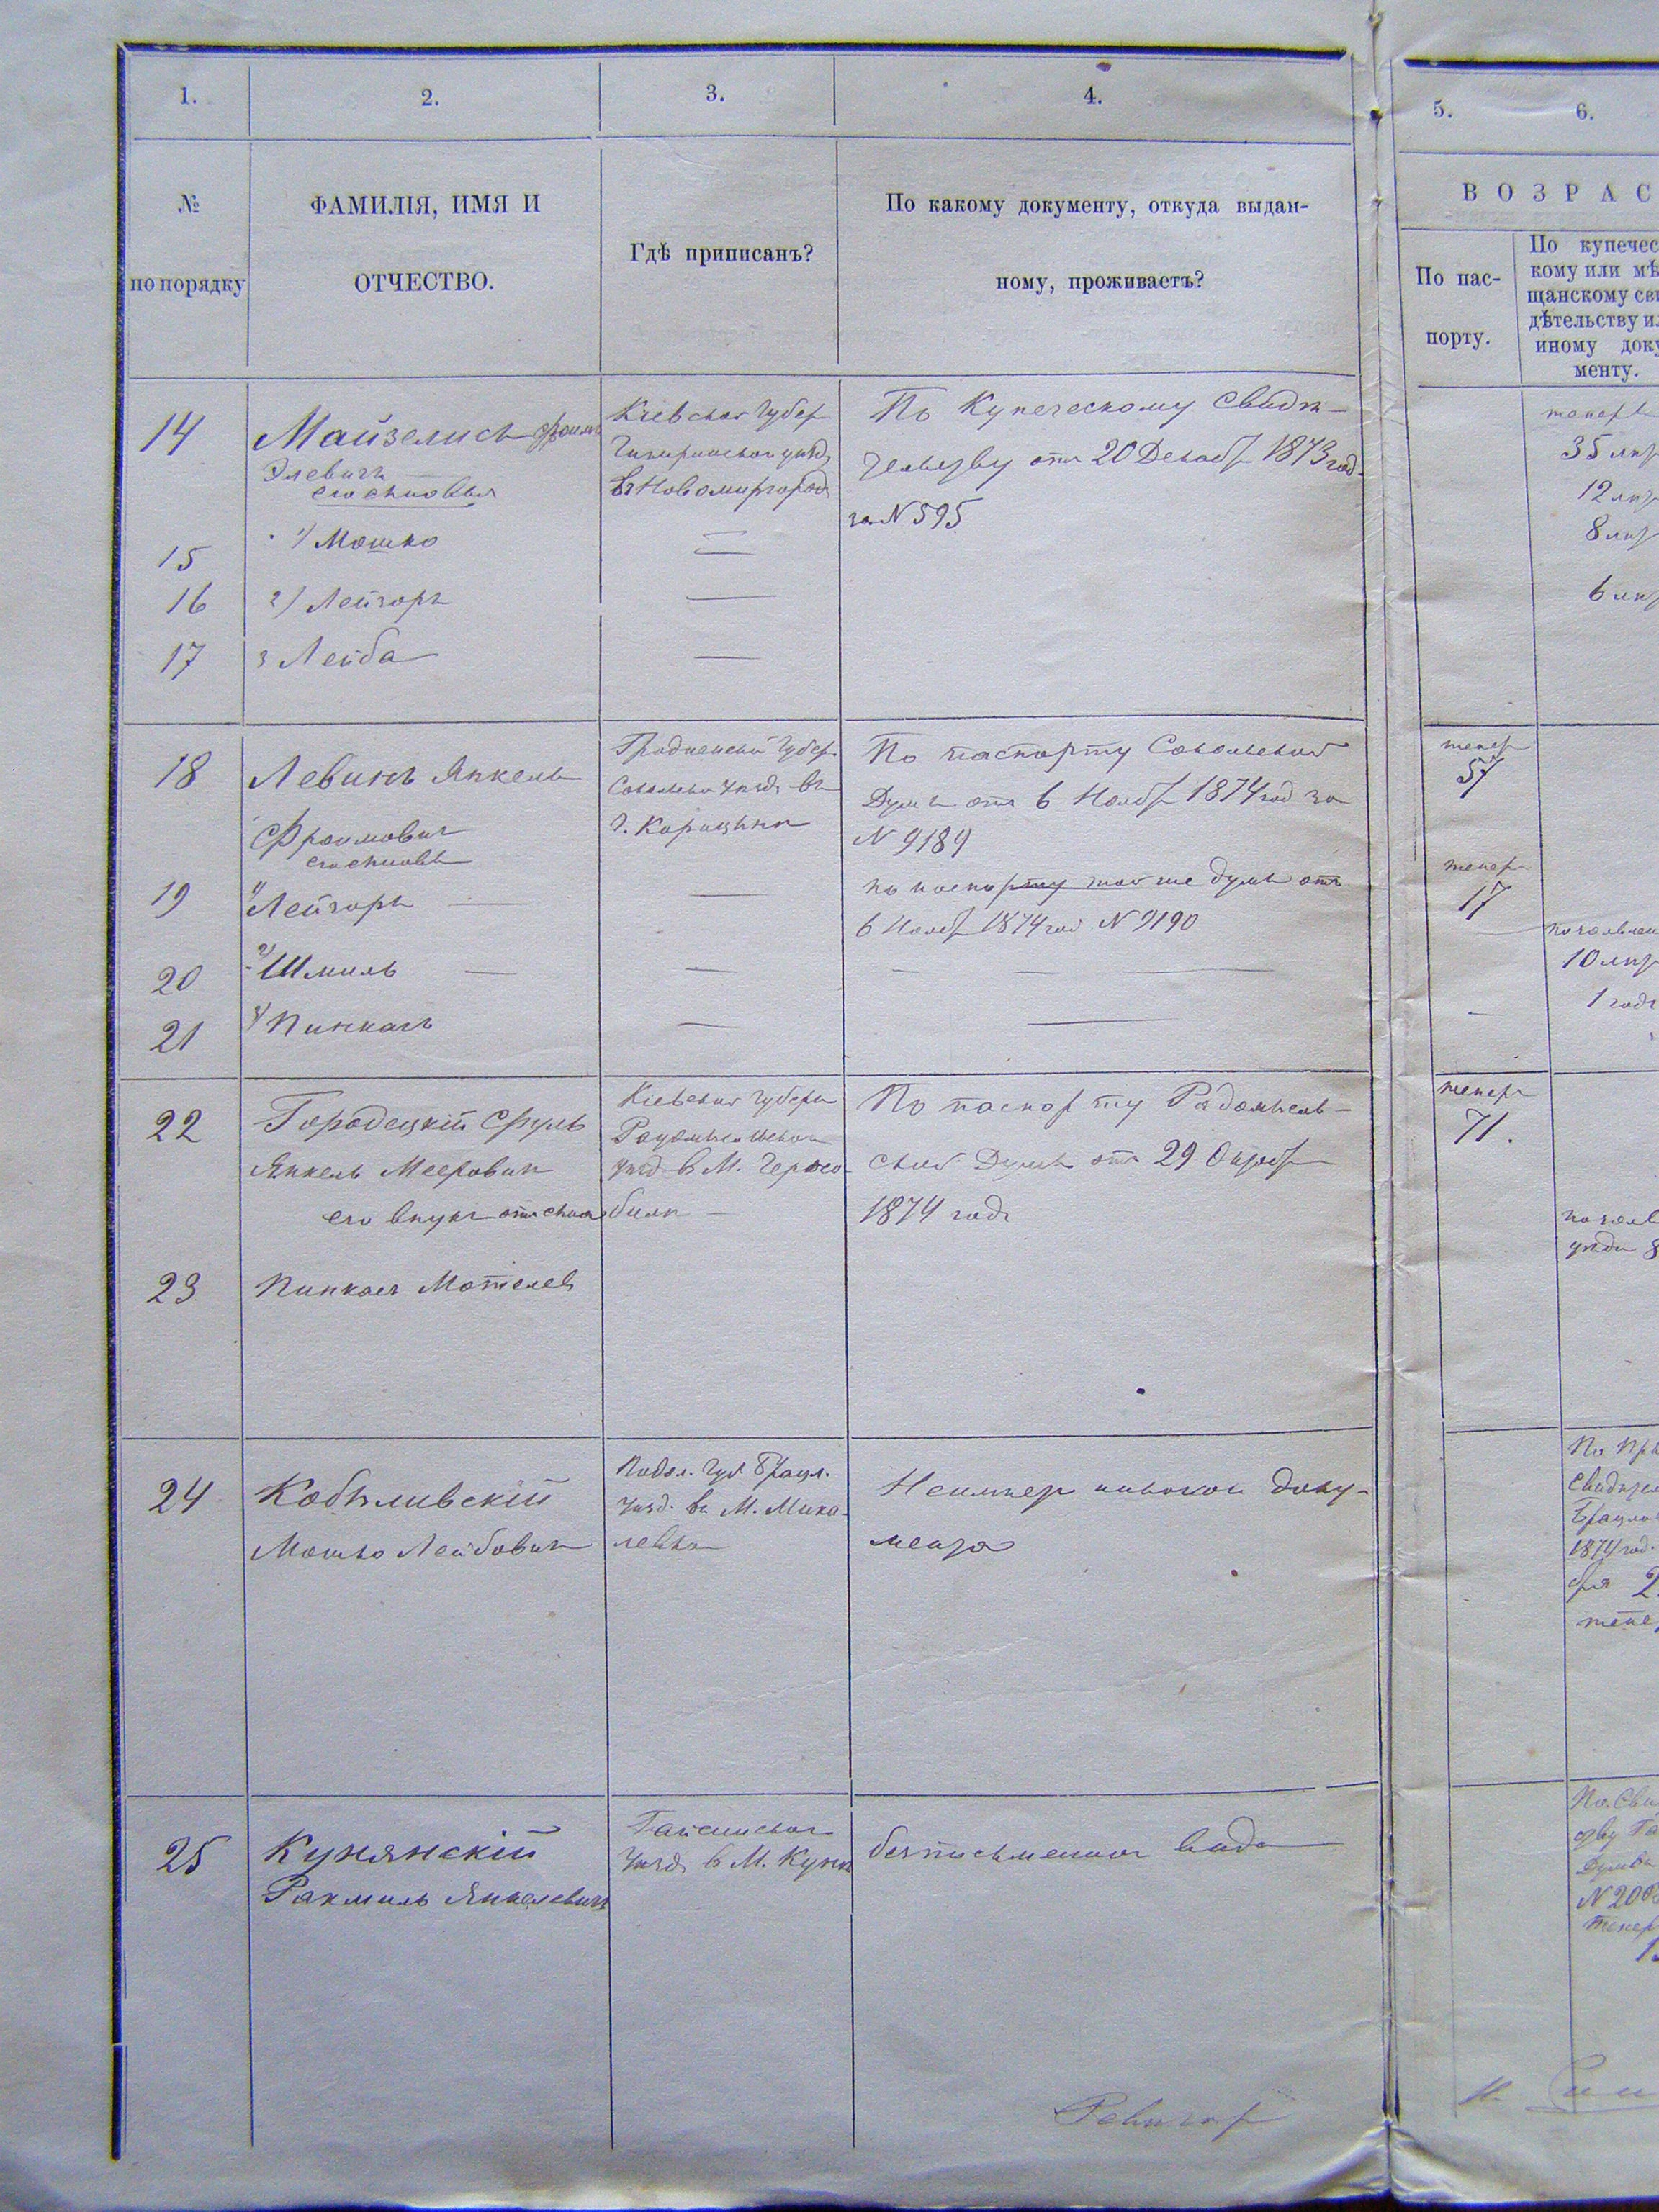 1. 2. 3. 4. 5. 6.
№
по порядку
ФАМИЛІЯ, ИМЯ И
ОТЧЕСТВО.
Гдѣ приписанъ?
По какому документу, откуда выдан-
ному, проживаетъ?
ВОЗРАС
По пас-
порту.
По купечес
кому или мѣ
щанскому сви
дѣтельству ил
иному доку
менту.
14
Майзелисъ Фроимъ
Элевичъ
его сыновья
Кіевской Губер
уѣзд
въ Новомиргород
По Купеческому Свидѣ-
тельству отъ 20 Декабр 1873 год
за N 595
теперь
35 лѣт
15
1) Мошко
12 лѣт
16
2) Лейзоръ
8 лѣт
17
3 Лейба
6 лѣт
18
Левинъ Янкель
Фроимовичъ
его сыновья
Гродненской Губер.
уѣзд въ
По паспорту Сокольской
Думы отъ 6 Ноябр 1874 год за
N 9189
тепер
57
19
1) Лейзоръ —
—
по паспорту той же думы отъ
6 Ноябр 1874 год N 9190
тепер
17
20
2) Шмиль —
—
— — —
по заявлен
10 лѣт
21
3) Пинкасъ
—
—
1 годъ
22
Городецкій Сруль
Янкель Мееровичъ
его внукъ отъ сына
Кіевской Губерн
уѣзд въ М. Черно-
былѣ —
По паспорту Радомысль-
ской Думы отъ 29 Октябр
1874 годъ
теперь
71.
23
Пинкасъ Мотелев
24
Кобыливскій
Мошко Лейбовичъ
Подол. Губ. Брацл.
уѣзд. въ М. Мика-
левка
Неимѣет никакой доку-
мента
По При
Свидѣте
Брацлав
1874 год.
бря 2
тепе
25
Кунянскій
Рахмиль Янкелевичъ
Гайсинской
Уѣзд в М. Кунѣ
безписьменного вида
По Сви
ству Га
Думы
N 200
тепер